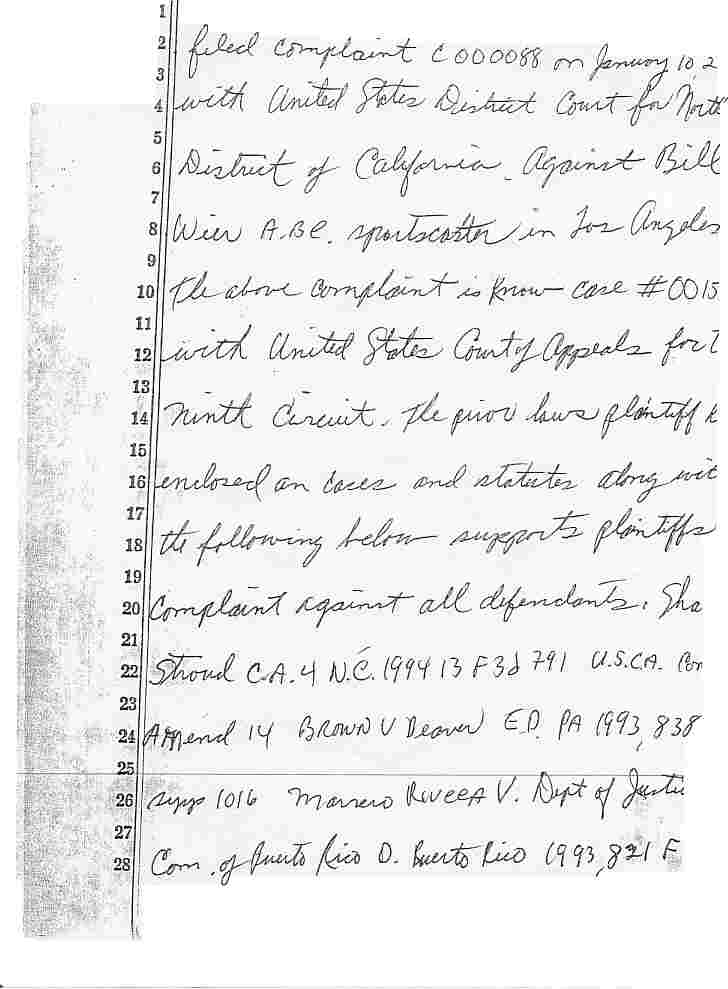 1
2 filed complaint C 000088 on January 10, 2
3
4 with United States District Court for North
5
6 District of California. Against Bill
7
8 Wier A.B.C. sportscaster in Los Angeles
9
10 the above complaint is know case #0015
11
12 with United States Court of Appeals for
13
14 Ninth Circuit. The prior laws plaintiff
15
16 enclosed on cases and statutes along wit
17
18 the following below supports plaintiffs
19
20 Complaint against all defendants. Sha
21
22 Stroud C.A. 4 N.C. 1994 13 F 3d 791 U.S.C.A. Con
23
24 Amend 14 BROWN V Deaver E.D. PA 1993, 838
25
26 supp 1016 Marrero RIVERA V. Dept of Justic
27
28 Com. of Puerto Rico D. Puerto Rico 1993, 821 F